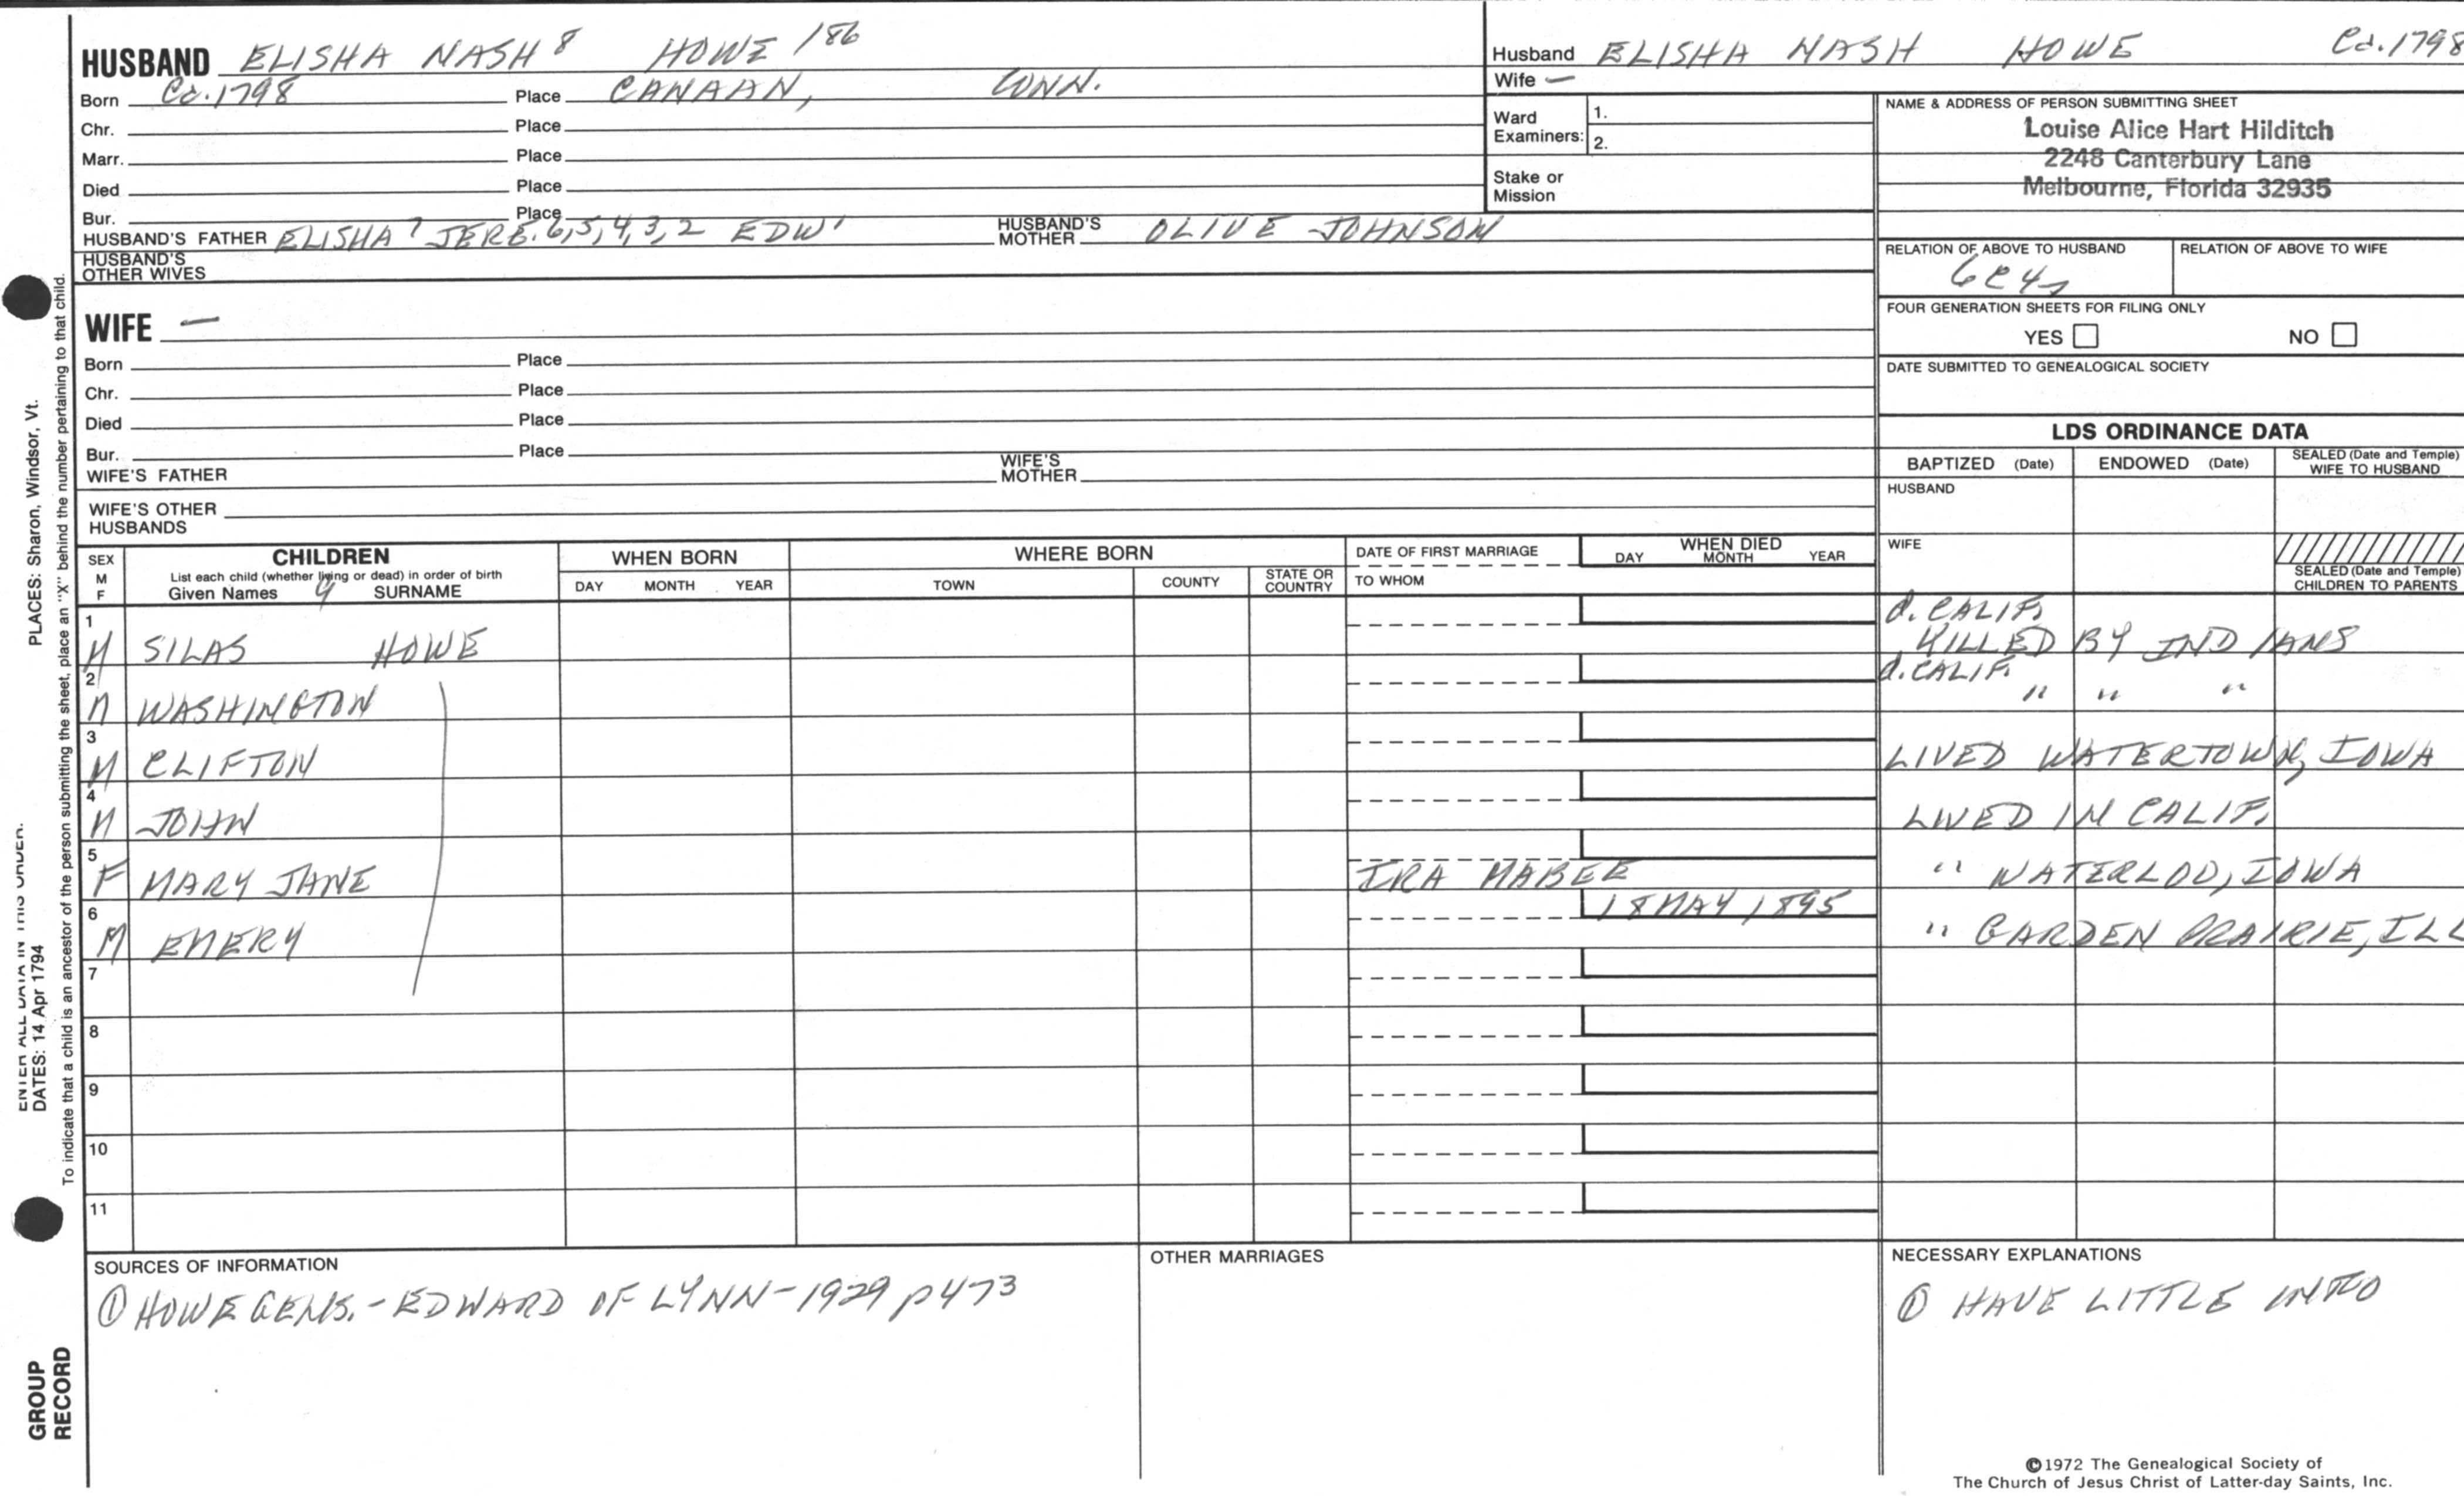 HUSBAND ELISHA NASH 8 HOWE 186
Born Ca. 1798 Place CANAAN, CONN.
Chr. Place
Marr. Place
Died Place
Bur. Place
HUSBAND'S FATHER ELISHA 7 JERE. 6,5,4,3,2 EDW 1 HUSBAND'S MOTHER OLIVE JOHNSON
HUSBAND'S OTHER WIVES
WIFE —
Born Place
Chr. Place
Died Place
Bur. Place
WIFE'S FATHER WIFE'S MOTHER
WIFE'S OTHER HUSBANDS
Husband ELISHA NASH HOWE Ca. 1798
Wife —
Ward Examiners: 1.
2.
Stake or Mission
NAME & ADDRESS OF PERSON SUBMITTING SHEET
Louise Alice Hart Hilditch
2248 Canterbury Lane
Melbourne, Florida 32935
RELATION OF ABOVE TO HUSBAND RELATION OF ABOVE TO WIFE
FOUR GENERATION SHEETS FOR FILING ONLY
YES NO
DATE SUBMITTED TO GENEALOGICAL SOCIETY
LDS ORDINANCE DATA
BAPTIZED (Date) ENDOWED (Date) SEALED (Date and Temple) WIFE TO HUSBAND
HUSBAND
WIFE
SEALED (Date and Temple) CHILDREN TO PARENTS
SEX M F
CHILDREN
List each child (whether living or dead) in order of birth
Given Names SURNAME
WHEN BORN
DAY MONTH YEAR
WHERE BORN
TOWN COUNTY STATE OR COUNTRY
DATE OF FIRST MARRIAGE
TO WHOM
WHEN DIED
DAY MONTH YEAR
1 M SILAS HOWE d. CALIF. KILLED BY INDIANS
2 M WASHINGTON d. CALIF. " " "
3 M CLIFTON LIVED WATERTOWN, IOWA
4 M JOHN LIVED IN CALIF.
5 F MARY JANE IRA MABEE " WATERLOO, IOWA
6 M EMERY 18 MAY 1895 " GARDEN PRAIRIE, ILL
7
8
9
10
11
SOURCES OF INFORMATION
① HOWE GENS. - EDWARD OF LYNN - 1929 p473
OTHER MARRIAGES
NECESSARY EXPLANATIONS
① HAVE LITTLE INFO
©1972 The Genealogical Society of
The Church of Jesus Christ of Latter-day Saints, Inc.
ENTER ALL DATA IN THIS ORDER:
DATES: 14 Apr 1794 PLACES: Sharon, Windsor, Vt.
To indicate that a child is an ancestor of the person submitting the sheet, place an "X" behind the number pertaining to that child.
GROUP
RECORD